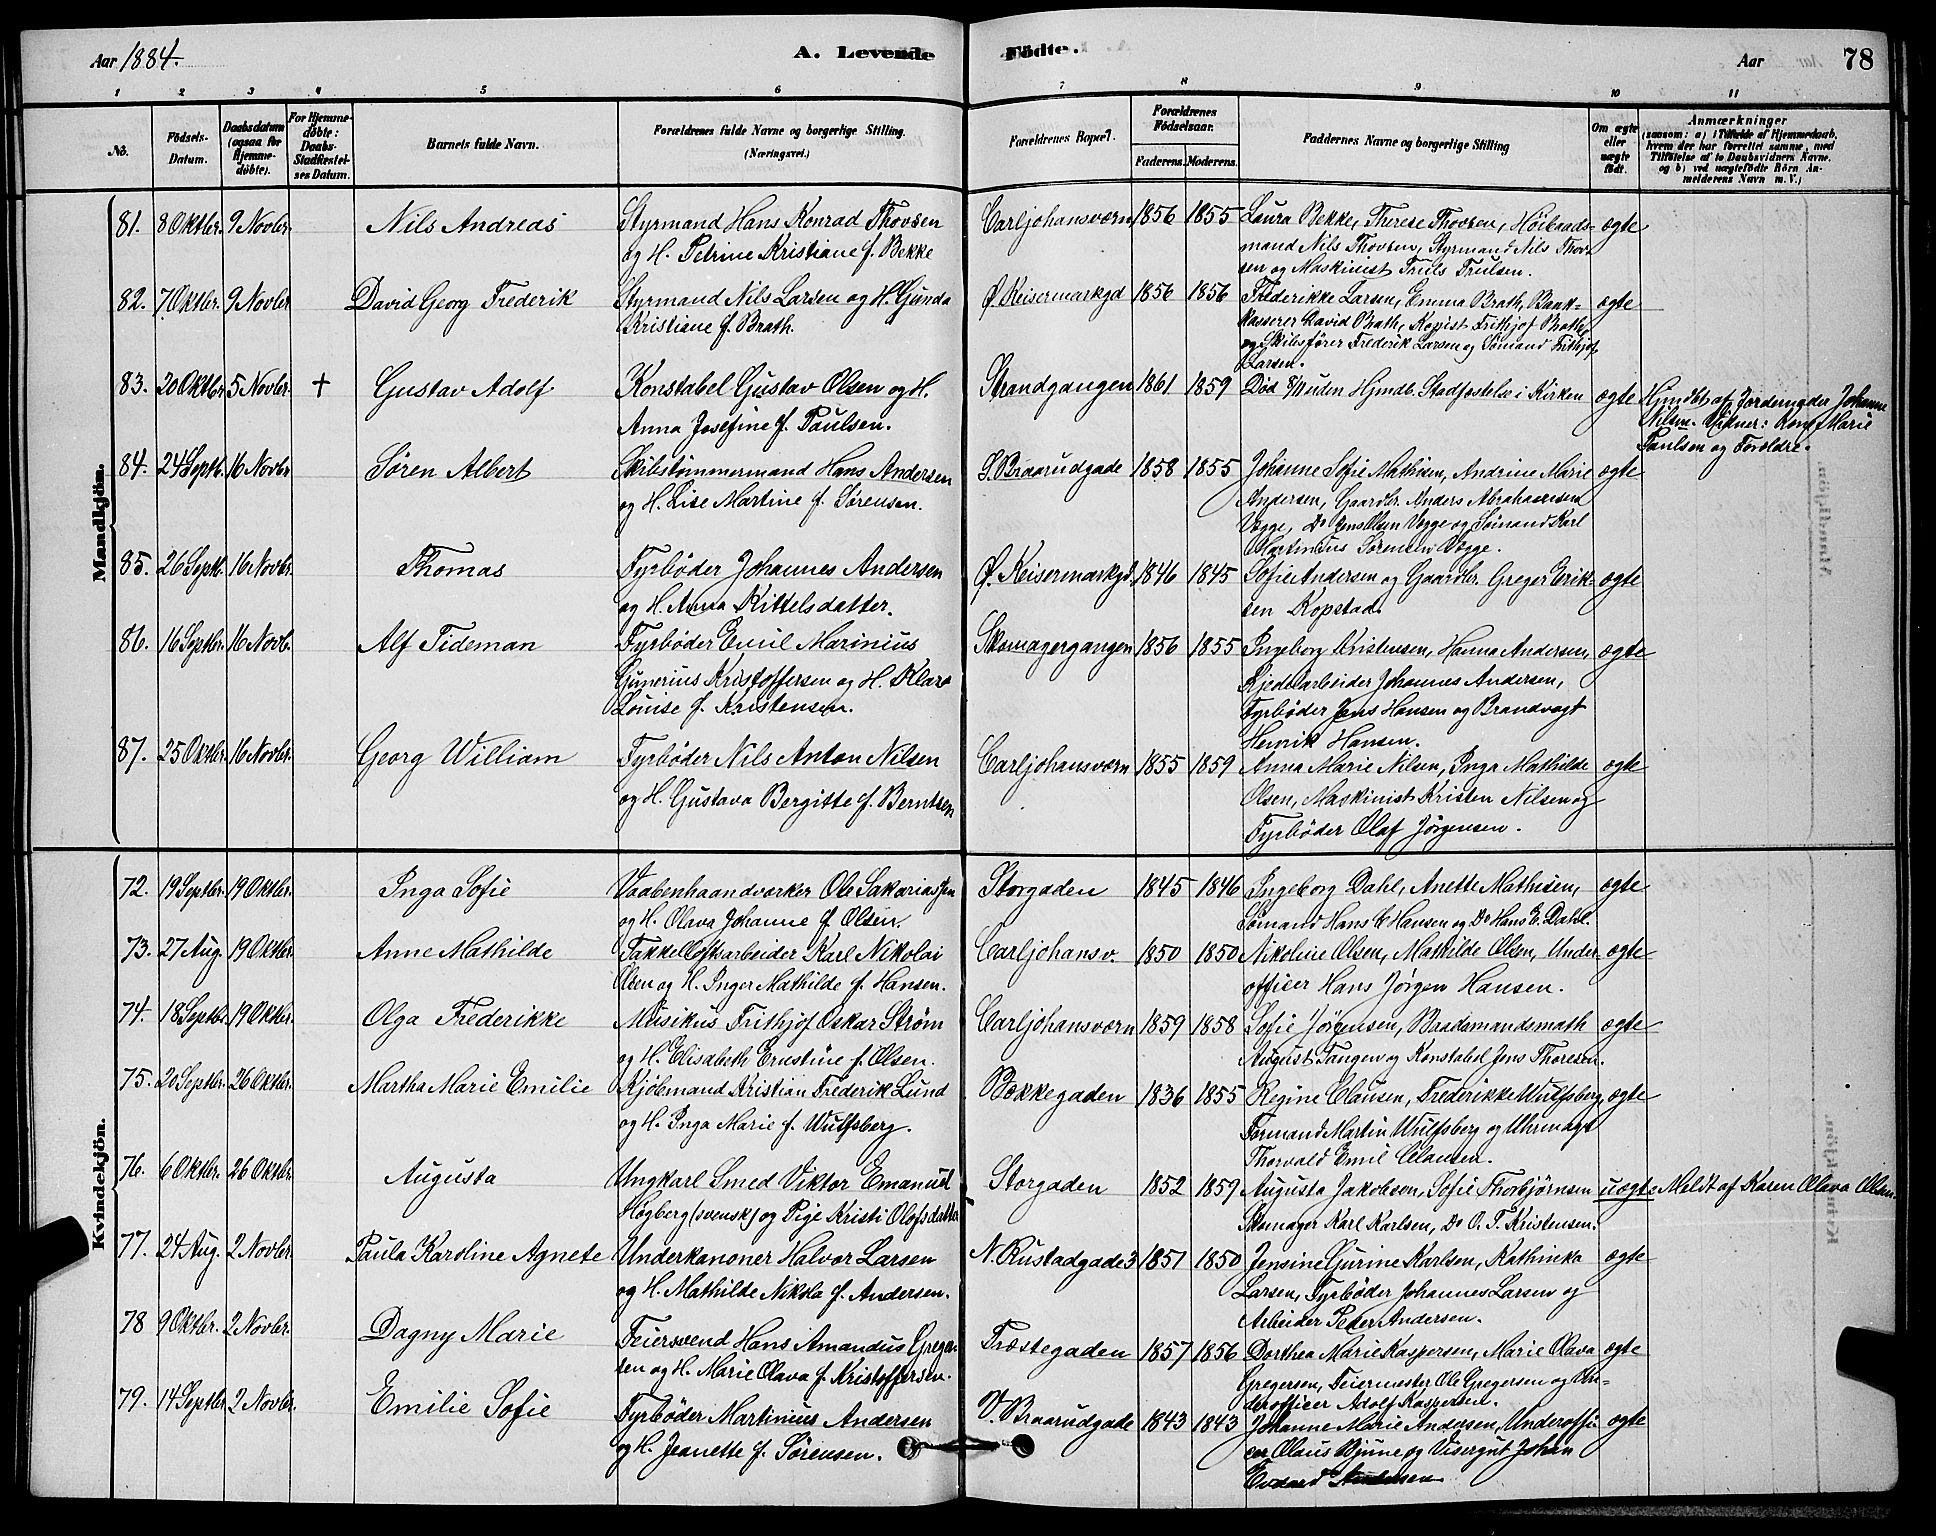 Aar 1884.
A. Levende Födte.
Aar 78
1 2 3 4 5 6 7 8 9 10 11
No.
Födsels-Datum.
Daabsdatum (ogsaa for Hjemme-döbte).
For Hjemme-döbte: Daabs-Stadfæstel-ses Datum.
Barnets fulde Navn.
Forældrenes fulde Navne og borgerlige Stilling. (Næringsvei.)
Forældrenes Bopæl.
Forældrenes Födselsaar.
Faderens. Moderens.
Faddernes Navne og borgerlige Stilling
Om ægte eller uægte födt.
Anmærkninger
(saasom: a) i Tilfælde af Hjemmedaab, hvem der har forrettet samme, med Tilföielse af to Daabsvidners Navne, og b) ved uægtefödte Börn An-melderens Navn m. V.)
Mandkjön.
81. 8 Oktbr. 9 Novbr. Nils Andreas Styrmand Hans Konrad Thovsen Carljohansværn 1856 1855 Laura Bekke, Therese Thovsen, Höibaads- ægte
og H. Petrine Kristiane f. Bekke mand Nils Thovsen, Styrmand Nils Thov-
sen og Maskinist Truls Trulsen.
82. 7 Oktbr. 9 Novbr David Georg Frederik Styrmand Nils Larsen og H. Gunda Ø. Keisermarkgd 1856 1856 Frederikke Larsen, Emma Brath, Bank- ægte
Kristiane f. Brath. kasserer David Brath, Kopist Frithjof Brath,
og Skibsfører Frederik Larsen og Sømand Frithjof
Larsen.
83. 20 Oktbr 5 Novbr. † Gustav Adolf Konstabel Gustav Olsen og H. Strandgangen 1861 1859 Død uden Hjmdb. Stadfæstelse i Kirken ægte Hjmdbt af Jordemoder Johanne
Anna Josefine f. Paulsen. Nilsen. Vidner: Kone Marie
Paulsen og Forældre.
84. 24 Septb. 16 Novbr Søren Albert Skibstømmermand Hans Andersen S. Braarudgade 1858 1855 Johanne Sofie Mathisen, Andrine Marie ægte
og H. Lise Martine f. Sørensen. Andersen, Gaardbr. Anders Abrahamsen
Vegge, Do Jens Olsen Vegge og Sømand Karl
Martinius Sørensen Vegge.
85. 26 Septb. 16 Novbr. Thomas Fyrbøder Johannes Andersen Ø. Keisermarkgd. 1846 1845 Sofie Andersen og Gaardbr. Greger Erik- ægte
og H. Anna Kittelsdatter. sen Kopstad.
86. 16 Septbr. 16 Novb. Alf Tideman Fyrbøder Emil Marinius Skomagergangen 1856 1855 Ingeborg Kristensen, Hanna Andersen, ægte
Gunerius Kristoffersen og H. Klara Kjedelarbeider Johannes Andersen,
Louise f. Kristensen. Fyrbøder Jens Hansen og Brandvagt
Henrik Hansen.
87. 25 Oktbr. 16 Novbr. Georg William Fyrbøder Nils Anton Nilsen Carljohansværn 1855 1859 Anna Marie Nilsen, Inga Mathilde ægte
og H. Gustava Bergitte f. Berntsen Olsen, Maskinist Kristen Nilsen og
Fyrbøder Olaf Jørgensen.
Kvindekjön.
72. 19 Septbr. 19 Oktbr. Inga Sofie Vaabenhaandværker Ole Sakariassen Storgaden 1845 1846 Ingeborg Dahl, Anette Mathisen, ægte
og H. Olava Johanne f. Olsen. Sømand Hans C Hansen og Do Hans E. Dahl.
73. 27 Aug. 19 Oktbr. Anne Mathilde Takkelloftsarbeider Karl Nikolai Carljohansv. 1850 1850 Nikoline Olsen, Mathilde Olsen, Under- ægte
Olsen og H. Inger Mathilde f. Hansen. officer Hans Jørgen Hansen.
74. 18 Septbr. 19 Oktbr. Olga Frederikke Musikus Frithjof Oskar Strøm Carljohansværn 1859 1858 Sofie Jørgensen, Baadsmandsmath ægte
og H. Elisabeth Ernstine f. Olsen. August Tangen og Konstabel Jens Thoresen.
75. 20 Septbr. 26 Oktbr. Martha Marie Emilie Kjøbmand Kristian Frederik Lund Bekkegaden 1836 1855 Regine Clausen, Frederikke Wulfsberg, ægte
og H. Inga Marie f. Wulfsberg. Formand Martin Wulfsberg og Uhrmager
Thorvald Emil Clausen.
76. 6 Oktbr. 26 Oktbr. Augusta Ungkarl Smed Viktor Emanuel Storgaden 1852 1859 Augusta Jakobsen, Sofie Thorbjørnsen uægte Meldt af Karen Olava Olsen.
Høgberg (svensk) og Pige Kristi Olofsdatter Skomager Karl Karlsen, Do O. T. Kristensen.
77. 24 Aug. 2 Novbr. Paula Karoline Agnete Underkanoner Halvor Larsen N. Rustadgade 3 1851 1850 Jensine Gurine Karlsen, Kathinka ægte
og H. Mathilde Nikola f. Andersen. Larsen, Fyrbøder Johannes Larsen og
Arbeider Peder Andersen.
78 9 Oktbr. 2 Novbr. Dagny Marie Feiersvend Hans Amandus Greger- Træstegaden 1857 1856 Dorthea Marie Kaspersen, Marie Olava ægte
sen og H. Marie Olava f. Kristoffersen. Gregersen, Feiermester Ole Gregersen og Un-
derofficer Adolf Kaspersen.
79. 14 Septbr 2 Novbr. Emilie Sofie Fyrbøder Martinius Andersen V. Braarudgade 1843 1843 Johanne Marie Andersen, Underoffi- ægte
og H. Jeanette f. Sørensen. cer Olaus Bjune og Visergut Johan
Edvard Andersen